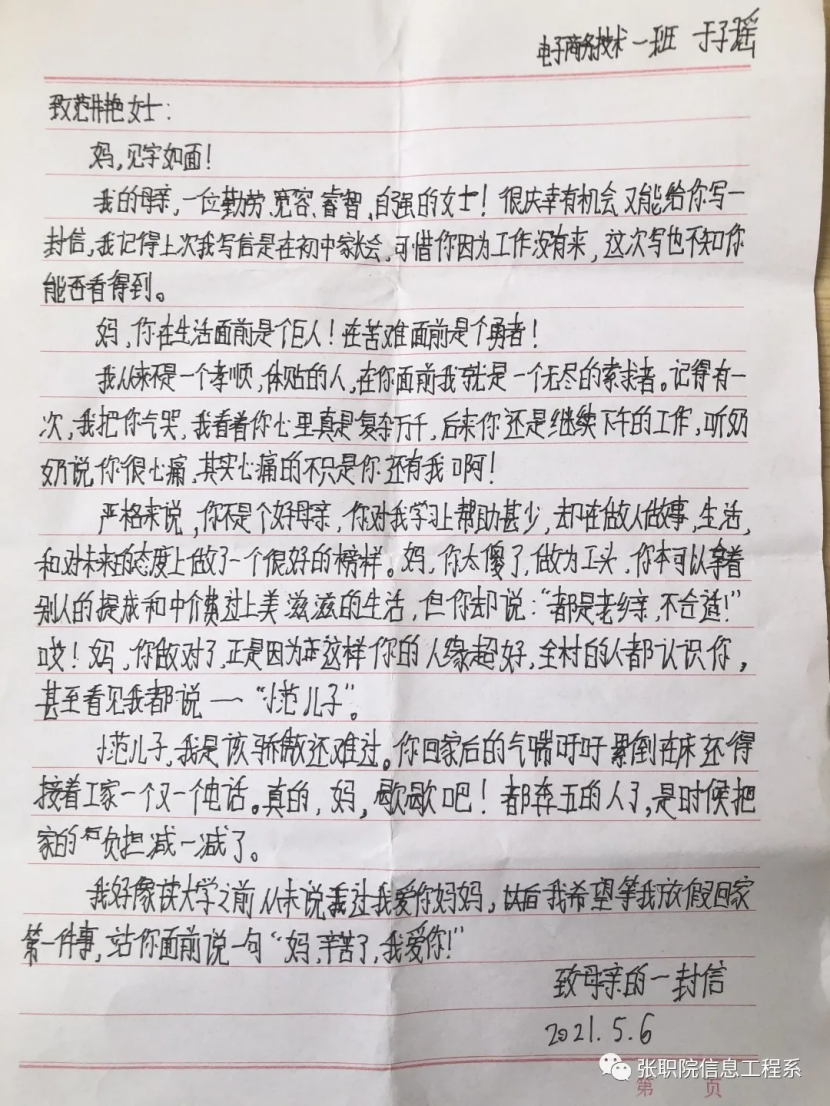 电子商务技术一班 于子瑶
致范艳女士：
妈，见字如面！
我的母亲，一位勤劳、宽容、睿智，自强的女士！很庆幸有机会又能给你写一
封信，我记得上次我写信是在初中家长会，可惜你因为工作没有来，这次写也不知你
能否看得到。
妈，你在生活面前是个巨人！在苦难面前是个勇者！
我从来不是一个孝顺，体贴的人，在你面前我就是一个无尽的索求者。记得有一
次，我把你气哭，我看着你心里真是复杂万千，后来你还是继续下午的工作，听奶
奶说你很心痛，其实心痛的不只是你还有我啊！
严格来说，你不是个好母亲，你对我学习上帮助甚少，却在做人做事，生活，
和对未来的态度上做了一个很好的榜样。妈，你太傻了，做为工头，你本可以拿着
别人的提成和中介费过上美滋滋的生活，但你却说：“都是老乡亲，不合适！”
哎！妈，你做对了，正是因为这样你的人缘超好，全村的人都认识你，
甚至看见我都说一“小范儿子”。
小范儿子，我是该骄傲还难过。你回家后的气喘吁吁累倒在床还得
接着工家一个又一个电话。真的，妈，歇歇吧！都奔五的人了，是时候把
家的负担减一减了。
我好像读大学之前从未说过我爱你妈妈，以后我希望等我放假回家
第一件事，站你面前说一句“妈，辛苦了，我爱你！”
致母亲的一封信
2021.5.6
张职院信息工程系
第 页